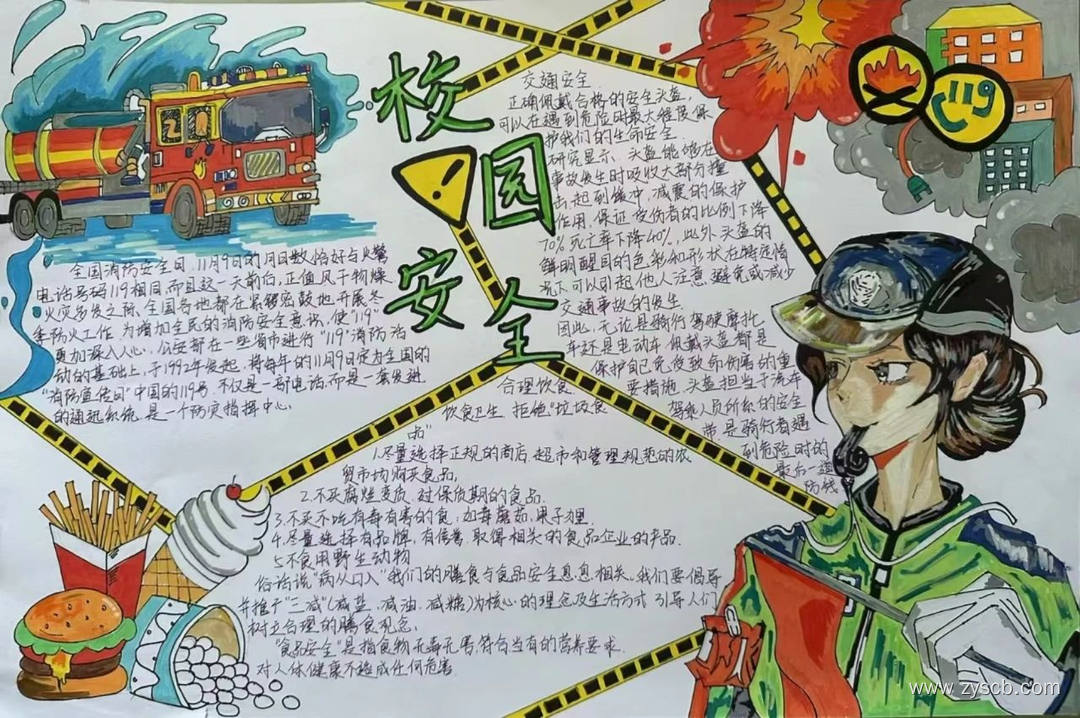 校园安全
全国消防安全日,11月9日的月日数恰好与火警
电话号码119相同,而且这一天前后,正值风干物燥
火灾多发之际,全国各地都在紧锣密鼓地开展冬
季防火工作。为增加全民的消防安全意识,使"119"
更加深入人心,公安部在一些省市进行"119"消防活
动的基础上,于1992年发起,将每年的11月9日定为全国的
"消防宣传日"中国的119号,不仅是一部电话,而是一套先进
的通迅系统,是一个防灾指挥中心。
交通安全
正确佩戴合格的安全头盔,
可以在遇到危险时最大程度保
护我们的生命安全.
研究显示、头盔能够在
事故发生时吸收大部分撞
击,起到缓冲,减震的保护
作用,保证受伤者的比例下降
70%死亡率下降40%,此外头盔的
鲜明醒目的色彩和形状在特定情
况下,可以引起他人注意,避免或减少
交通事故的发生
因此,无论是骑行驾驶摩托
车还是电动车,佩戴头盔都是
保护自己免受致命伤害的重
要措施,头盔担当于汽车
驾乘人员所系的安全
带,是骑行者遇
到危险时的
最后一道
防线
119
合理饮食
饮食卫生 拒绝"垃圾食
品"
1.尽量选择正规的商店,超市和管理规范的农
贸市场购买食品,
2.不买腐烂变质、过保质期的食品
3.不买不吃有毒有害的食,如毒蘑菇、果子狸
4.尽量选择有品牌,有信誉,取得相关的食品企业的产品.
5.不食用野生动物
俗话说"病从口入"我们的膳食与食品安全息息相关。我们要倡导
并推广"三减"(减盐、减油、减糖)为核心的理念及生活方式,引导人们
树立合理的膳食观念。
"食品安全"是指食物无毒无害,符合当有的营养要求.
对人体健康不造成任何危害.
www.zyscb.com